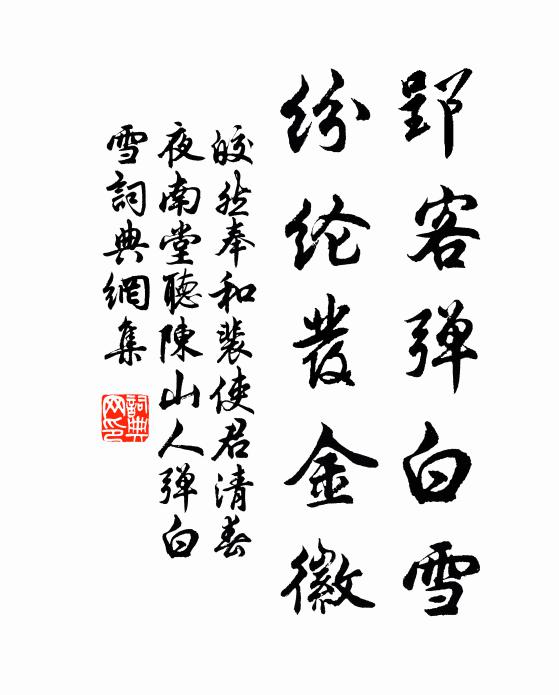 郢客弹白雪
纷纶發金徽
皎然奉和裴使君清春
夜南堂聽陳山人弹白
雪詞典網集
詞典
网印